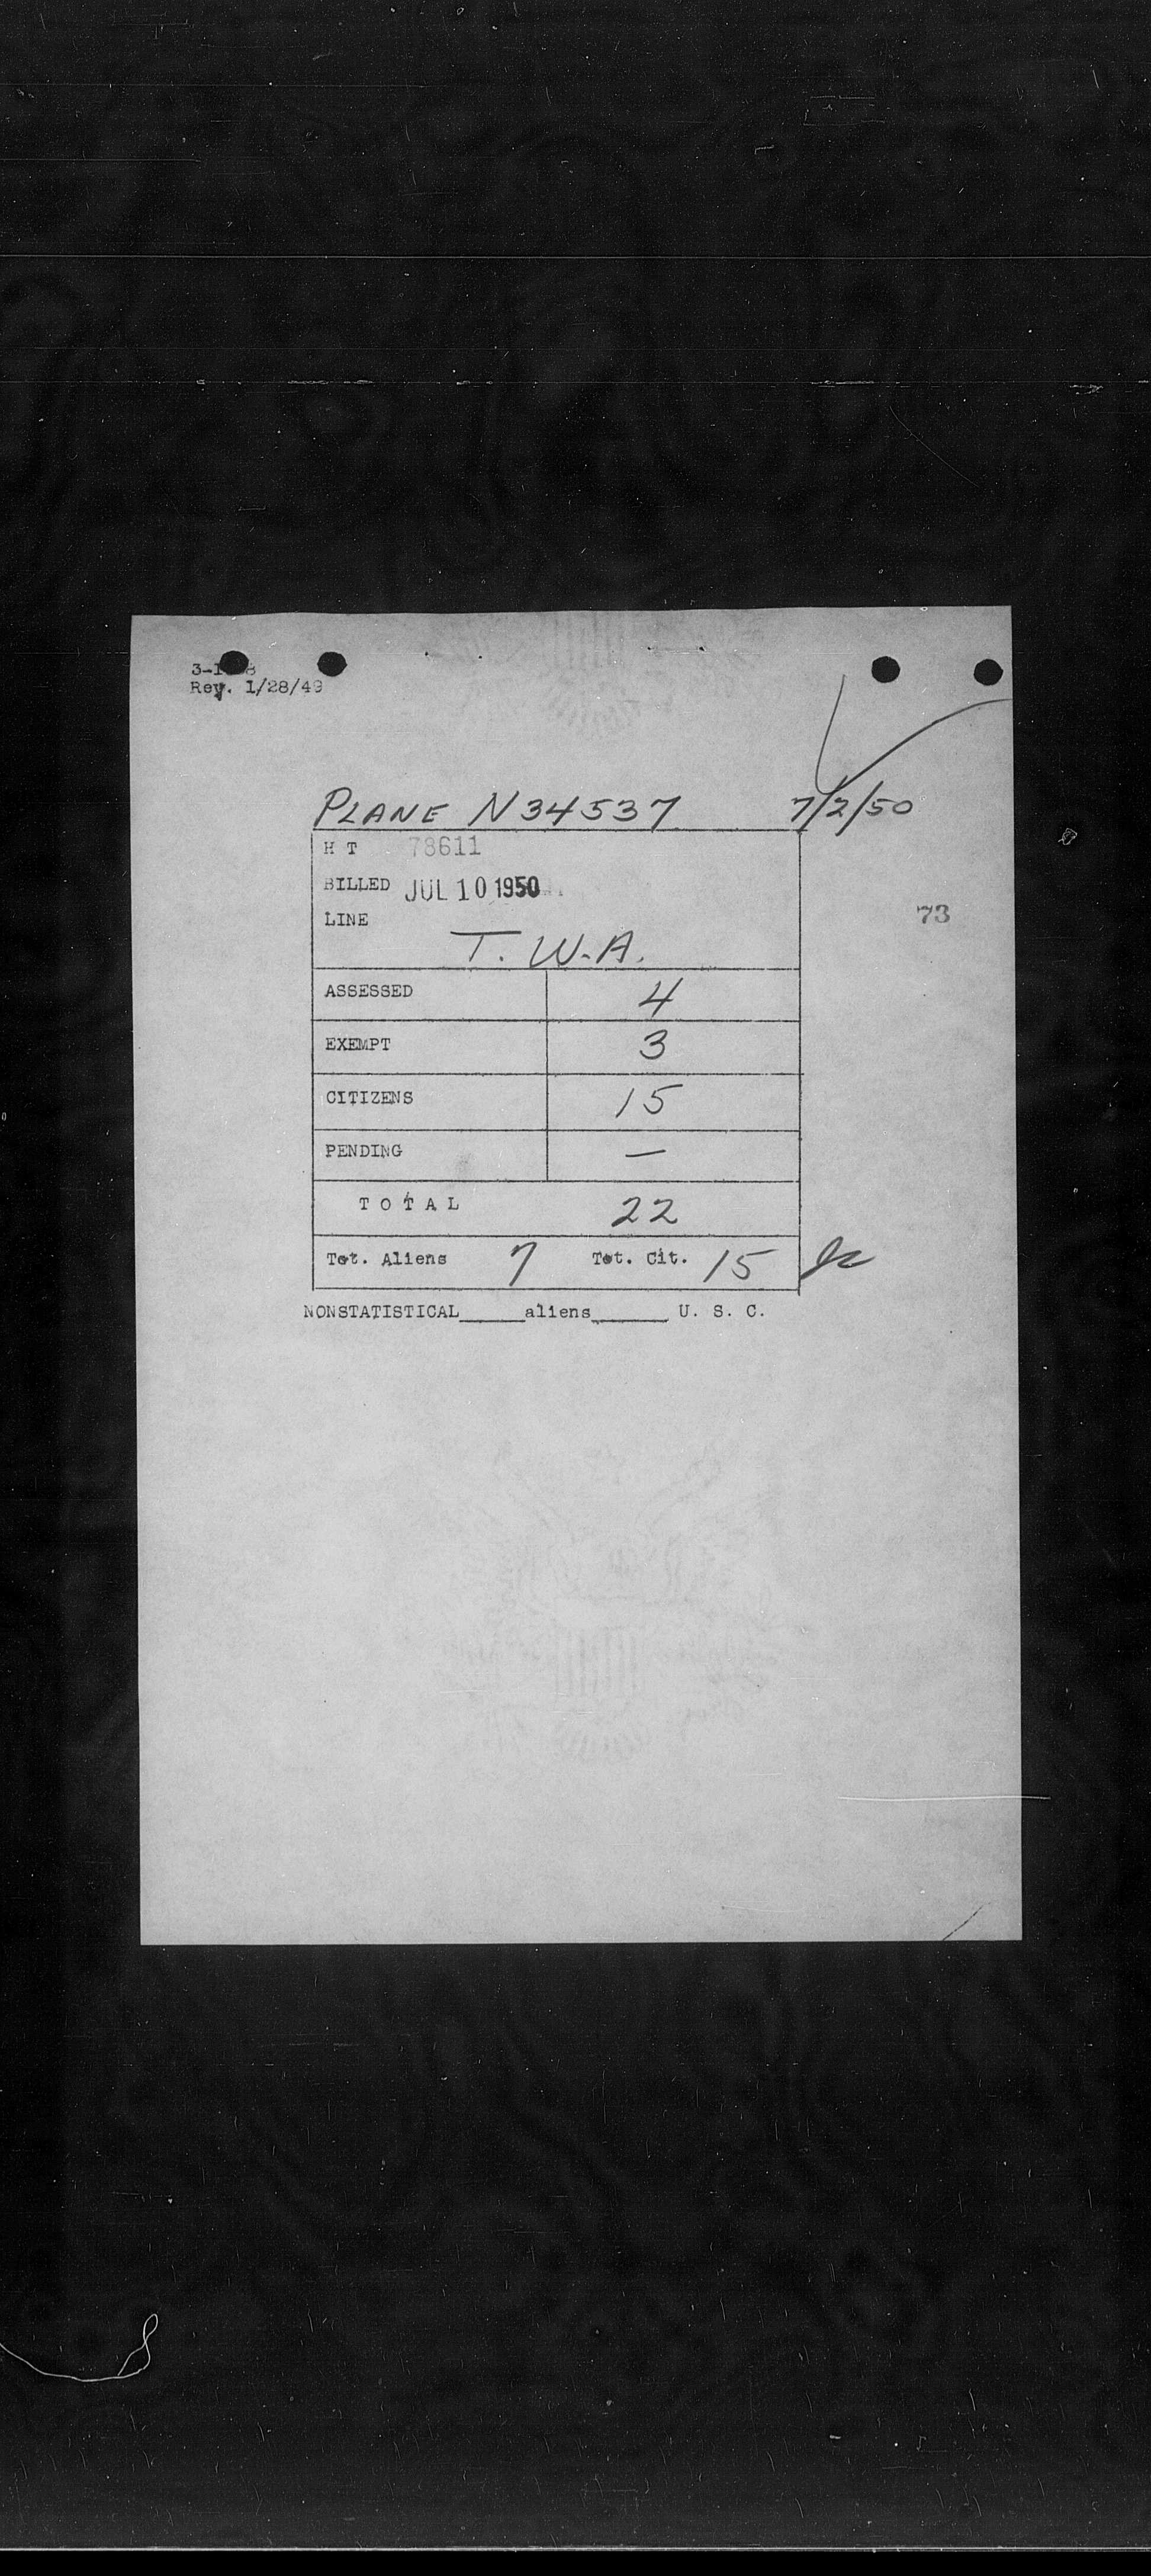 Rev. 1/28/49
PLANE N34537 7/2/50
H T 78611
BILLED JUL 10 1950
LINE
73
T.W.A.
ASSESSED 4
EXEMPT 3
CITIZENS 15
PENDING —
TOTAL 22
Tot. Aliens 7 Tot. Cit. 15
NONSTATISTICAL_____aliens______ U. S. C.